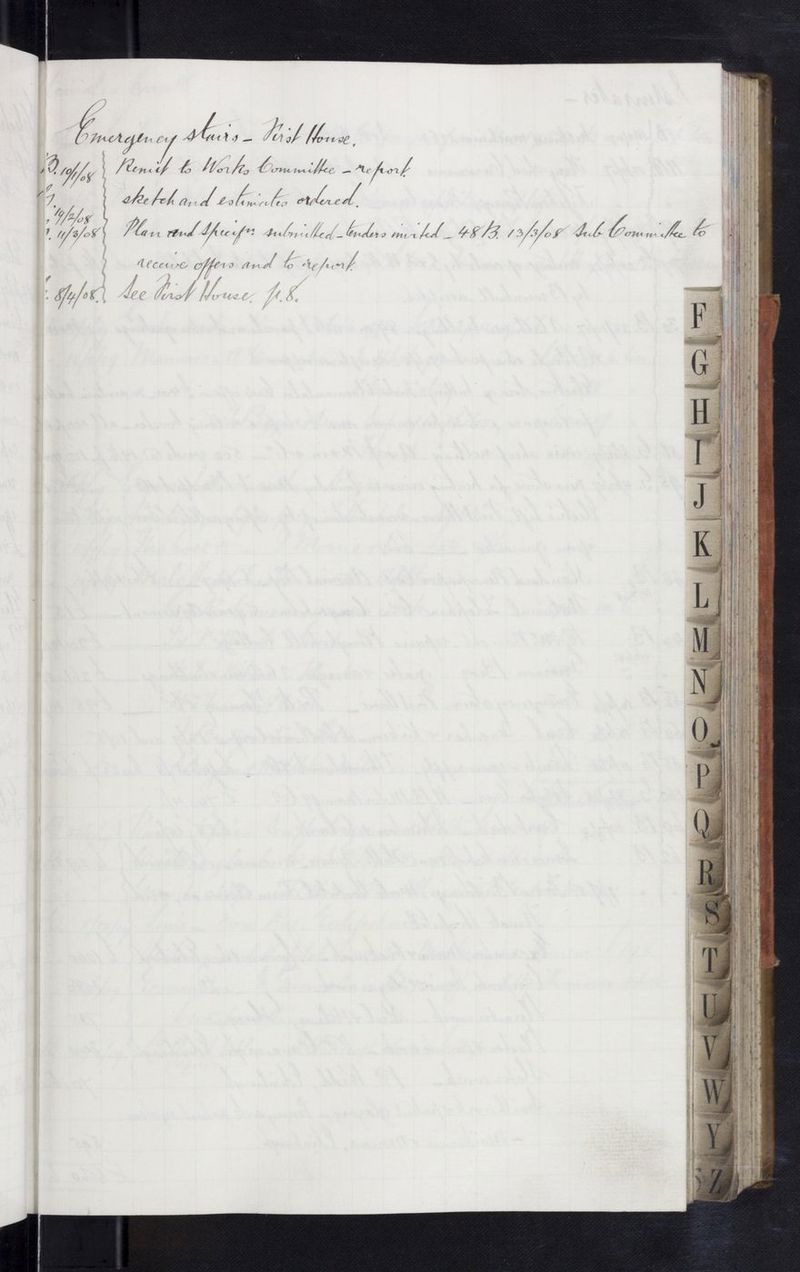 Emergency stairs - First House.
B. 10/1/08 Remit to Works Committee - report
sketch and estimates ordered.
11/3/08 Plan and Specifn submitted - tenders invited - 48 B. 13/3/08 Sub Committee to
receive offers and to report.
8/4/08. See First House. p. 8.
F
G
H
I
J
K
L
M
N
O
P
Q
R
S
T
U
V
W
Y
Z